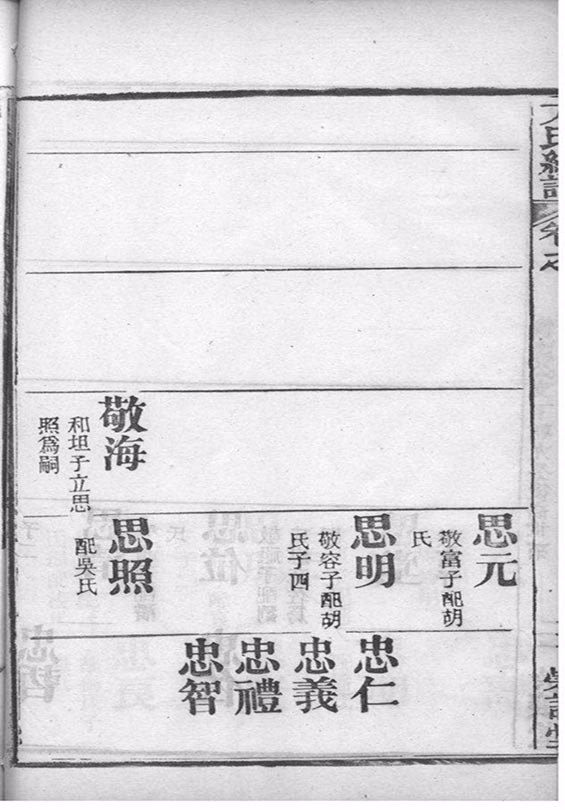 思元
敬富子配胡
氏
思明
敬容子配胡
氏子四
忠仁
忠義
忠禮
忠智
敬海
和坦子立思
照爲嗣
思照
配吳氏